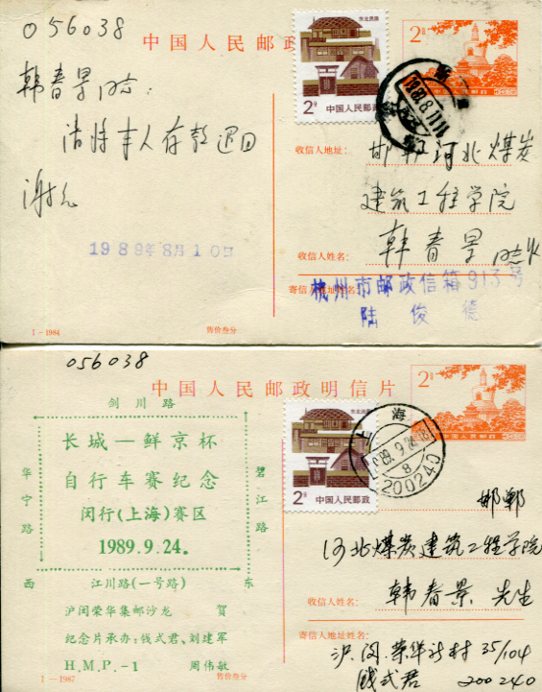 056038
中国人民邮政
东北民居
2分
中国人民邮政
2分
中国人民邮政
韩春景同志:
请将本人存款退回
谢谢
1989年8月10日
收信人地址:
邯郸河北煤炭
建筑工程学院
收信人姓名:
韩春景同志收
寄信人地址姓名:
杭州市邮政信箱913号
陆俊德
1-1984
售价叁分
056038
中国人民邮政明信片
东北民居
2分
中国人民邮政
2分
中国人民邮政
上海
1989.9.24
8
(200240)
剑川路
长城—鲜京杯
自行车赛纪念
闵行(上海)赛区
1989.9.24.
华宁路
碧江路
西
东
江川路(一号路)
沪闵荣华集邮沙龙 贺
纪念片承办:钱式君、刘建军
H.M.P.-1 周伟敏
邯郸
河北煤炭建筑工程学院
收信人姓名:
韩春景 先生
寄信人地址姓名:
沪闵荣华新村35/104
钱式君 200240
1-1987
售价叁分